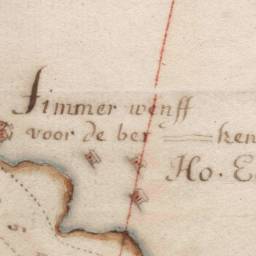 Timmer werff
voor de ber = ken
Ho. E